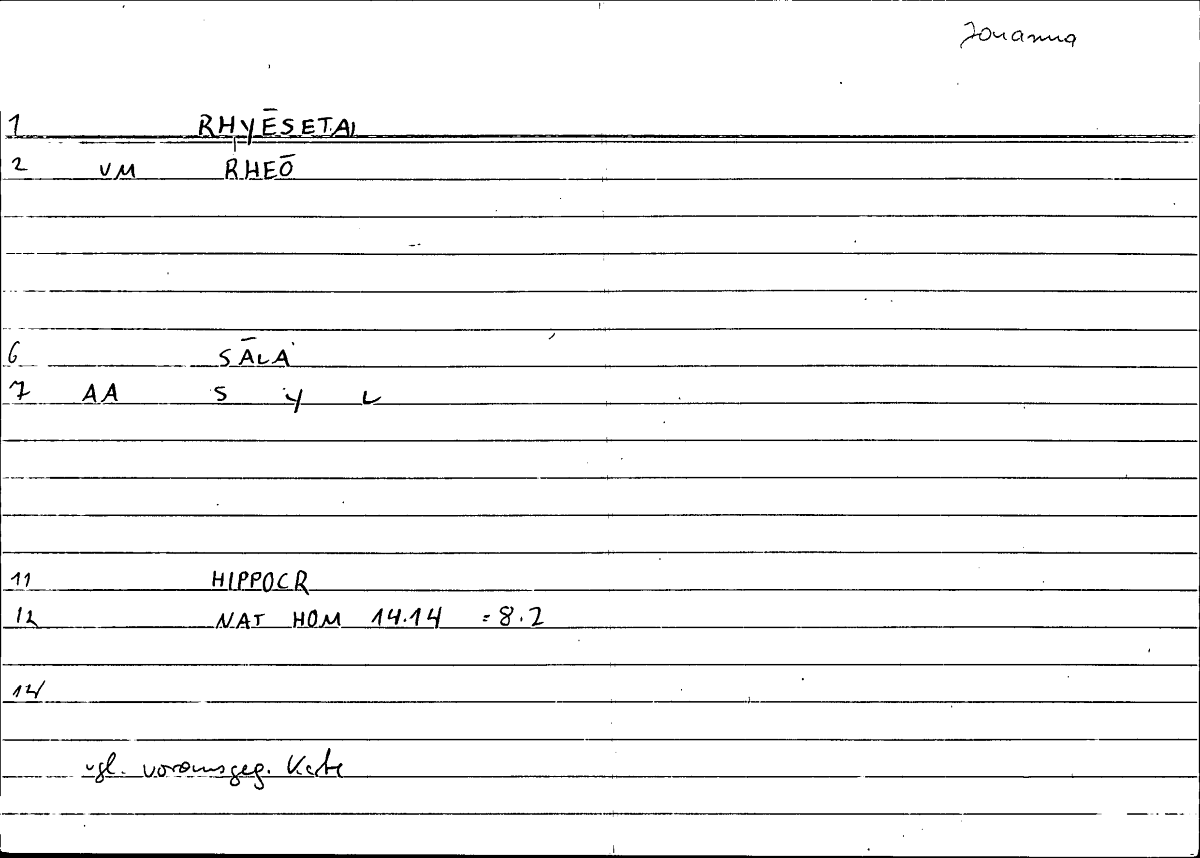 Johanna
1 RHYĒSETAI
2 VM RHEŌ
6 SĀLA
7 AA S Y L
11 HIPPOCR
12 NAT HOM 14.14 = 8.2
14
vgl. vorausgeg. Karte